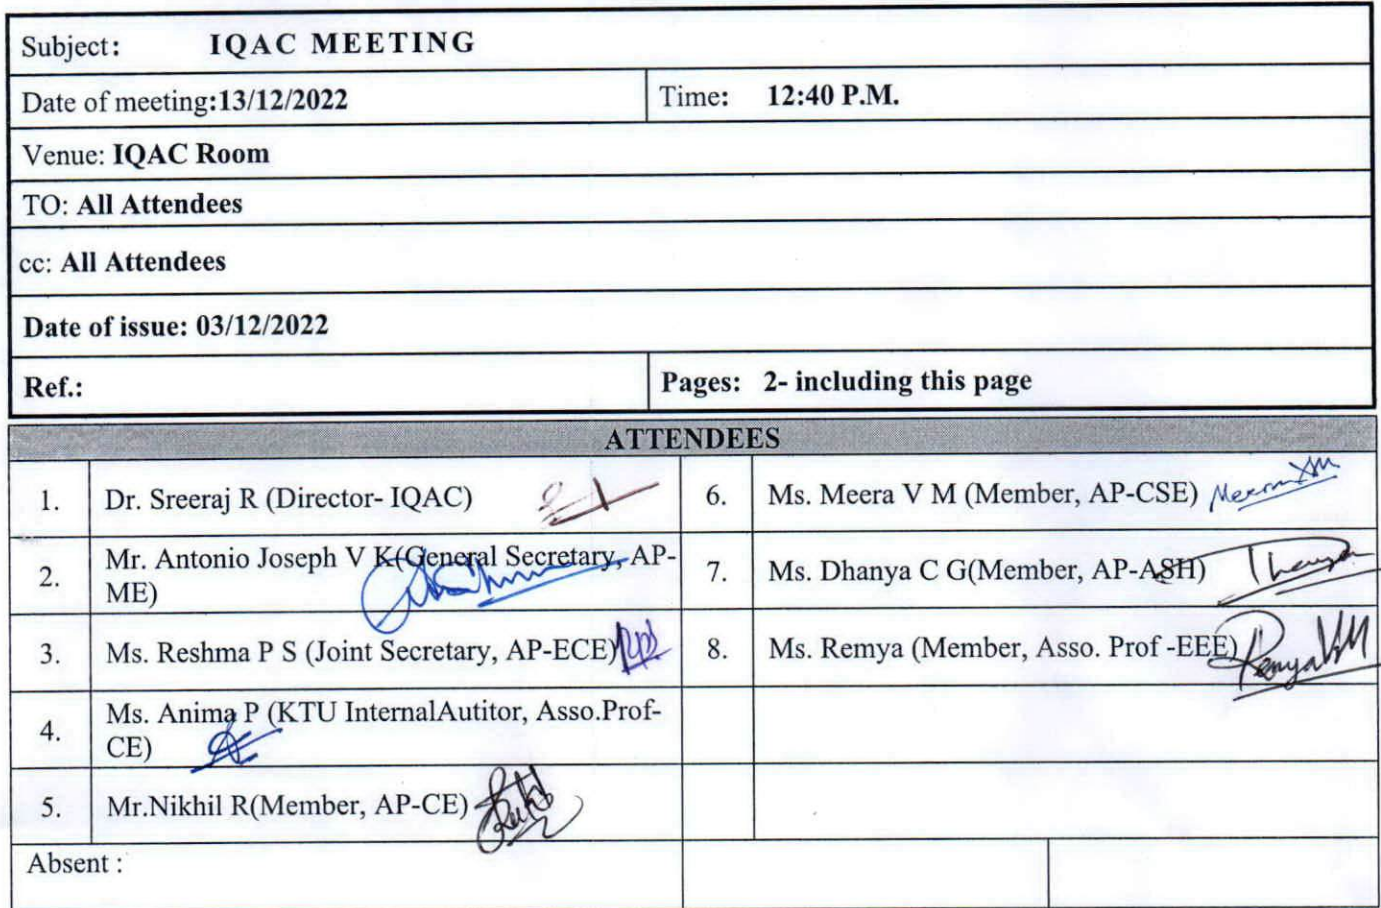 Subject: IQAC MEETING
Date of meeting:13/12/2022 Time: 12:40 P.M.
Venue: IQAC Room
TO: All Attendees
cc: All Attendees
Date of issue: 03/12/2022
Ref.: Pages: 2- including this page
ATTENDEES
1. Dr. Sreeraj R (Director- IQAC)
6. Ms. Meera V M (Member, AP-CSE) Meera VM
2. Mr. Antonio Joseph V K(General Secretary, AP-
ME)
7. Ms. Dhanya C G(Member, AP-ASH)
3. Ms. Reshma P S (Joint Secretary, AP-ECE)
8. Ms. Remya (Member, Asso. Prof -EEE) Remya VM
4. Ms. Anima P (KTU InternalAutitor, Asso.Prof-
CE)
5. Mr.Nikhil R(Member, AP-CE)
Absent :